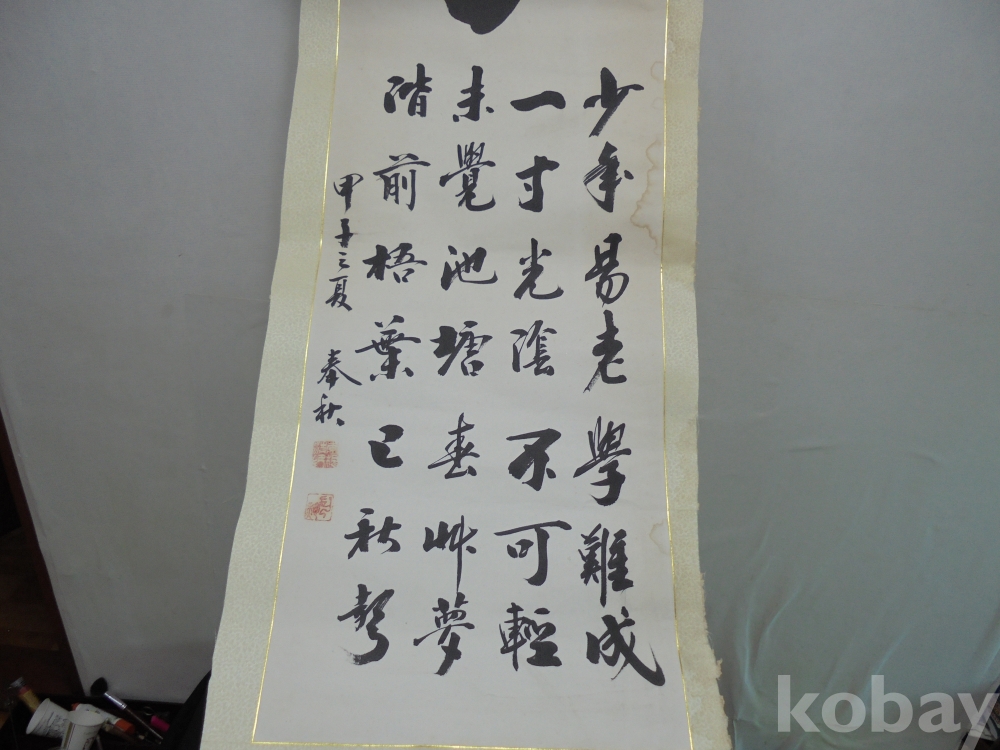 少年易老學難成
一寸光陰不可輕
未覺池塘春艸夢
階前梧葉已秋聲
甲子之夏
奉秋
kobay